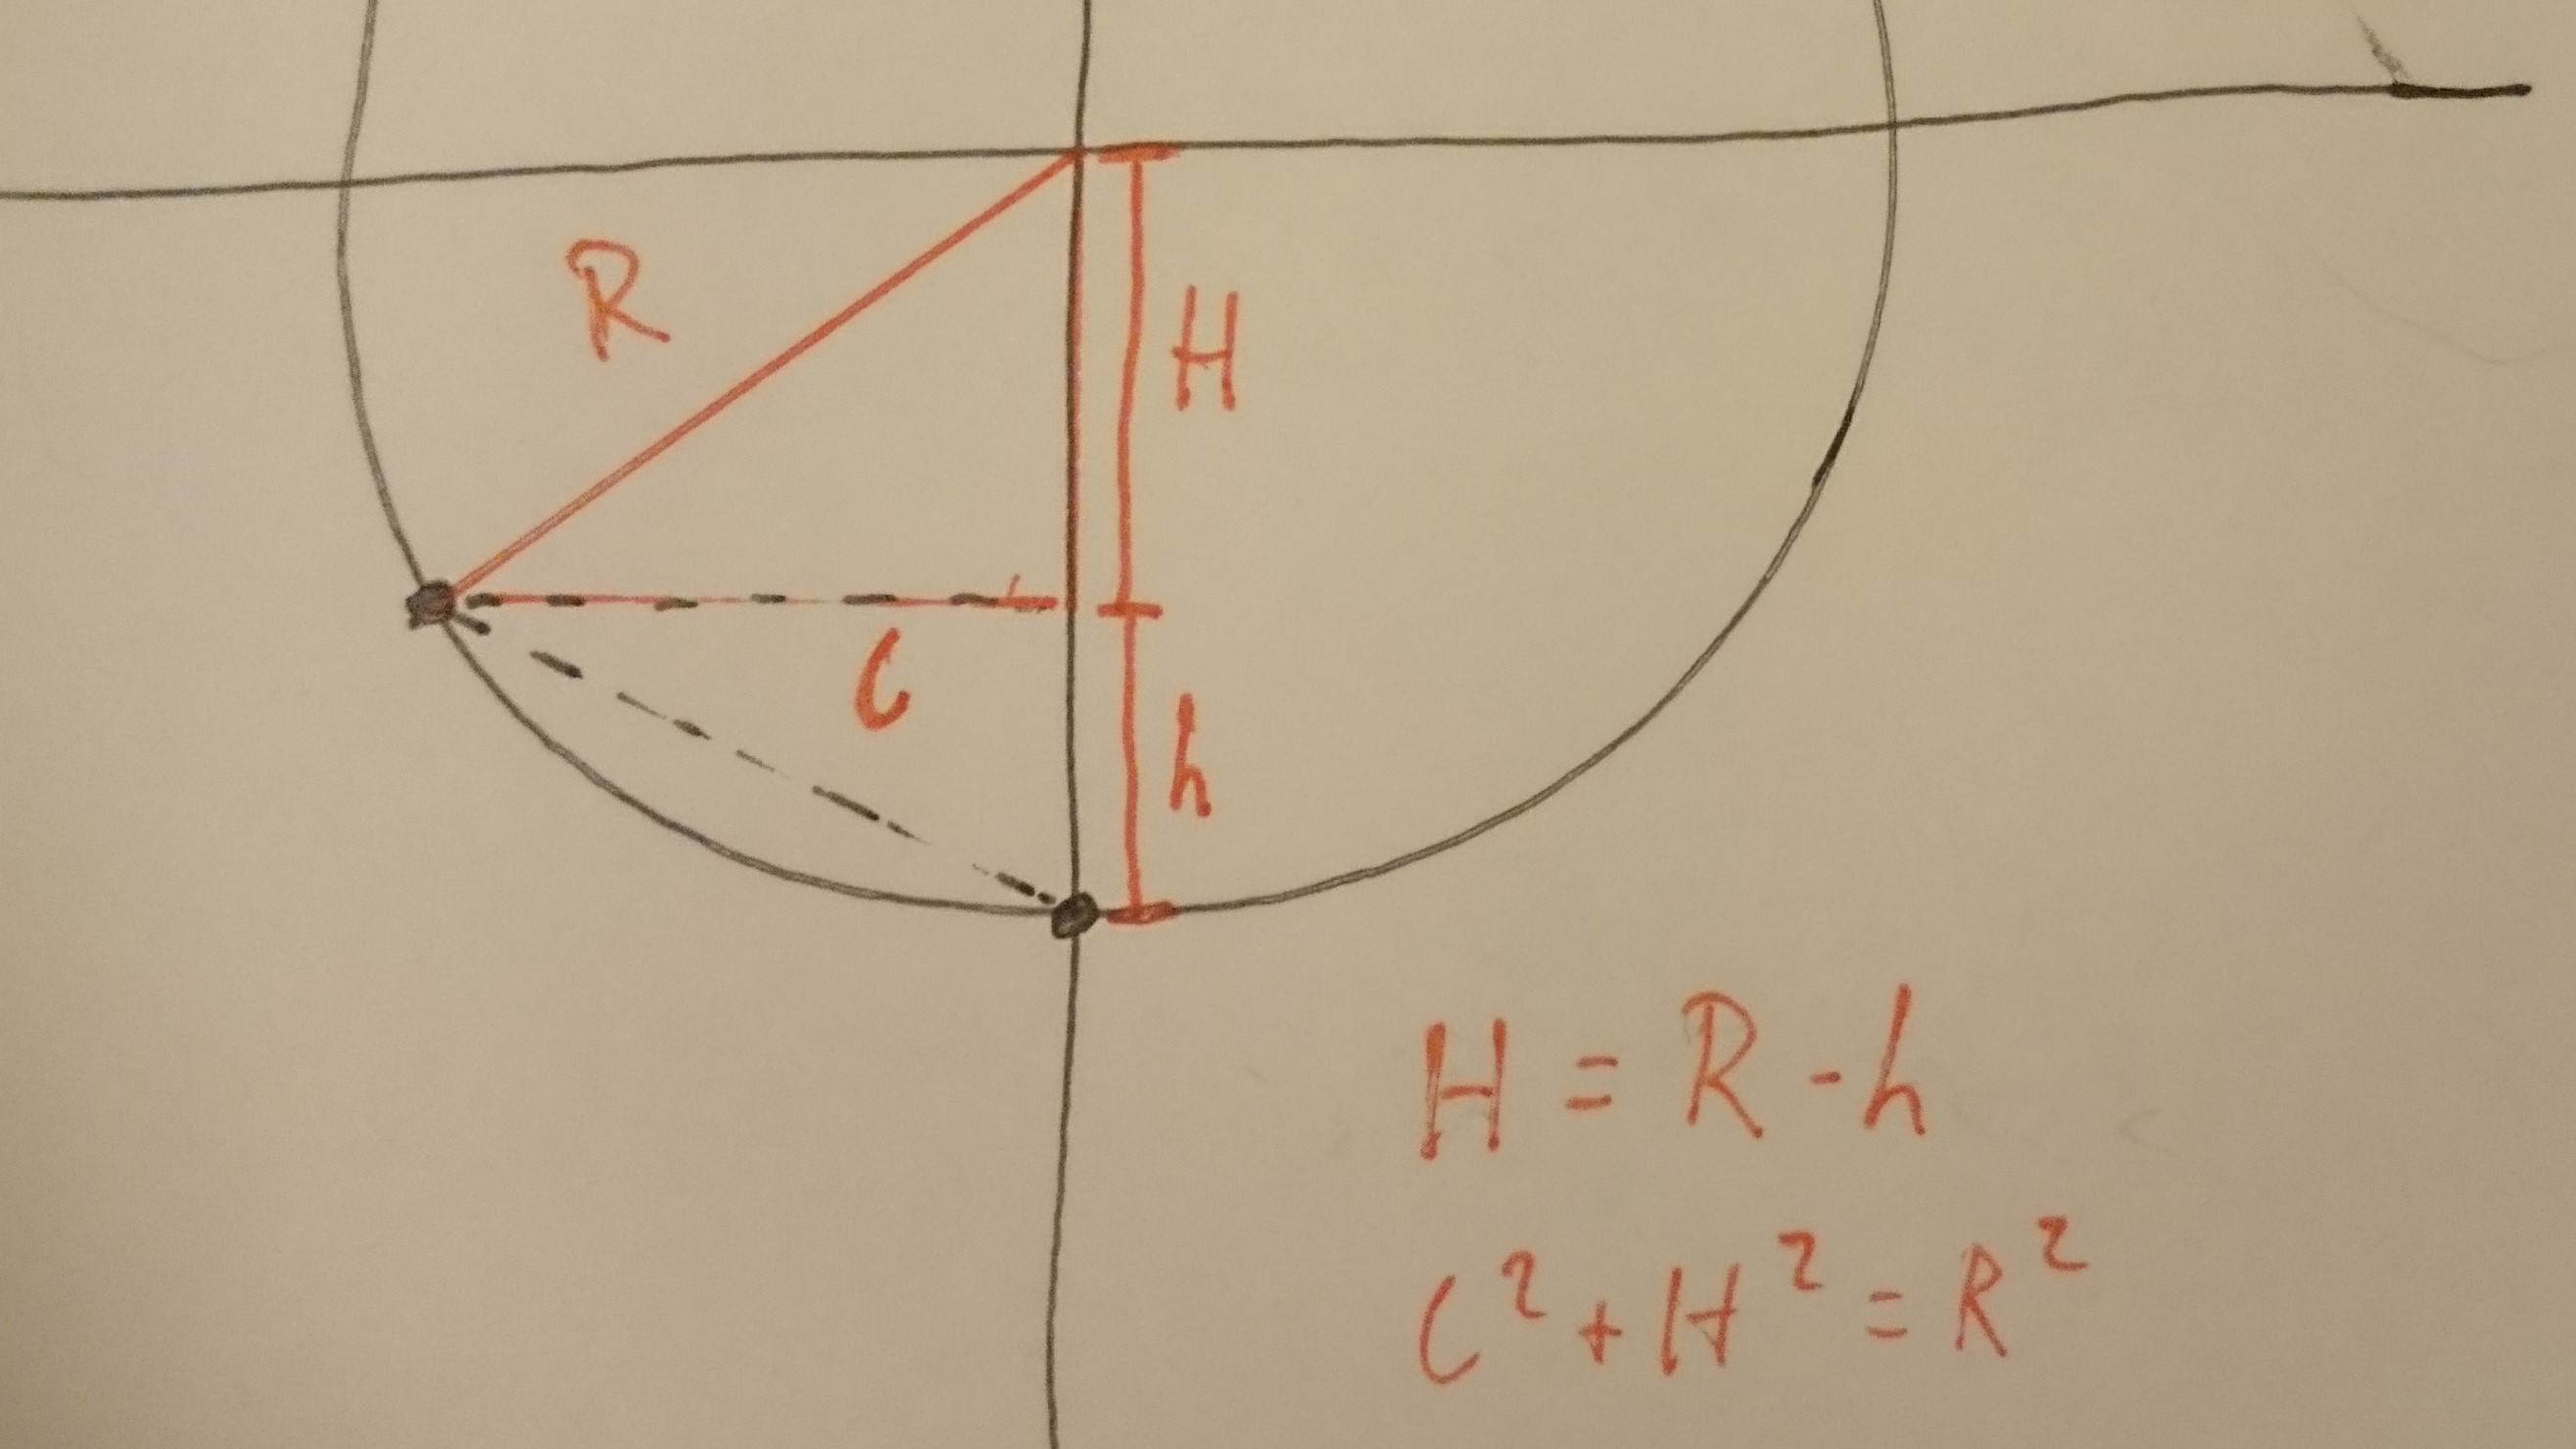 R
H
C
h
H = R - h
C² + H² = R²